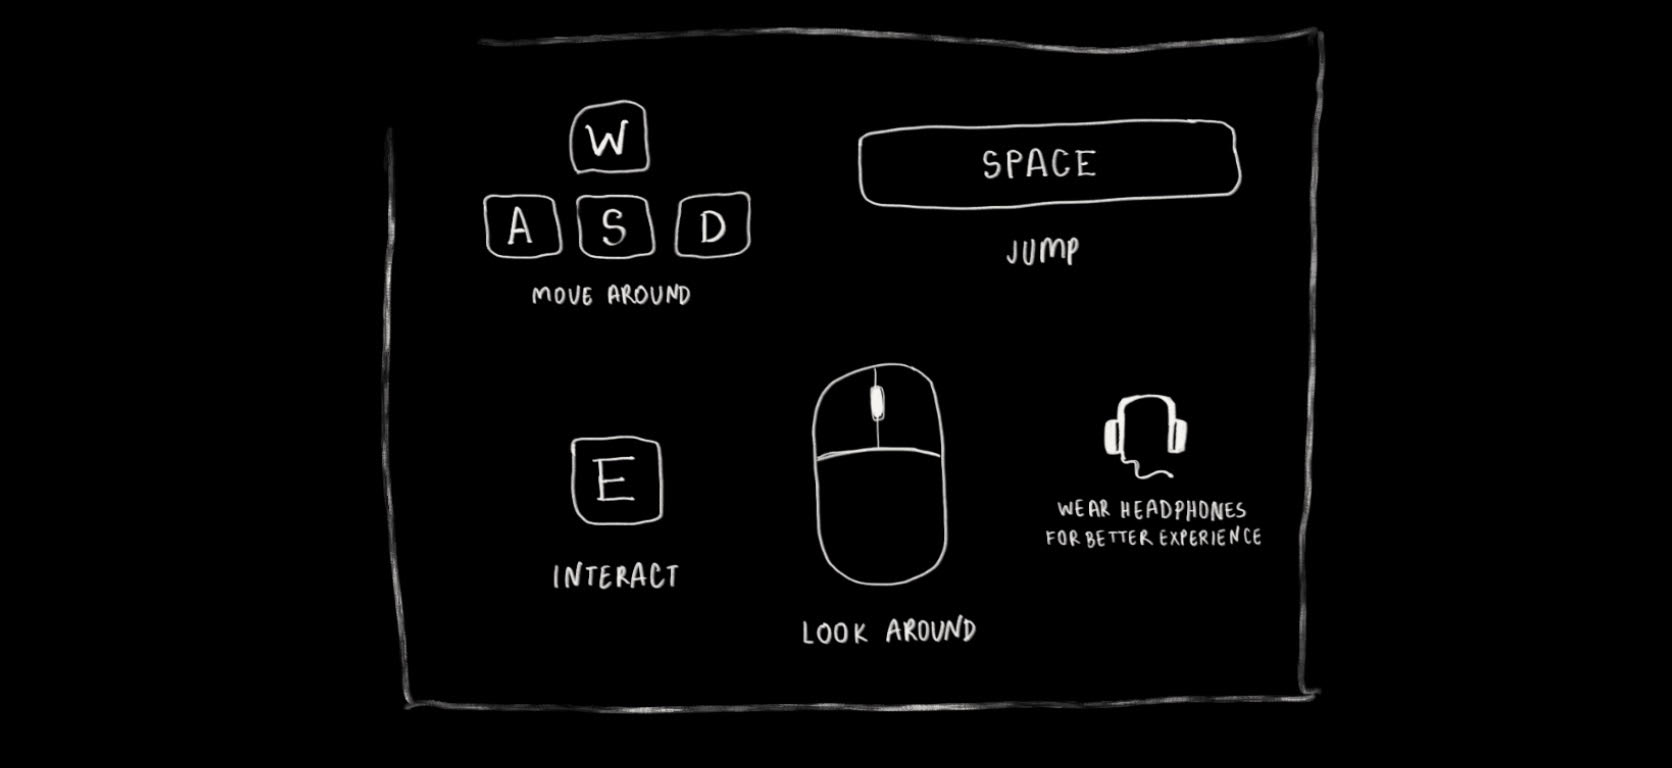 W
A S D
MOVE AROUND
SPACE
JUMP
E
INTERACT
LOOK AROUND
WEAR HEADPHONES
FOR BETTER EXPERIENCE